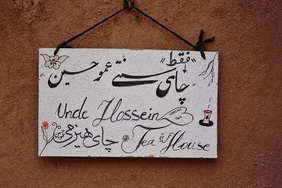 فقط
چای سنتی عمو حسین
Uncle Hossein
چای هیزمی Tea House